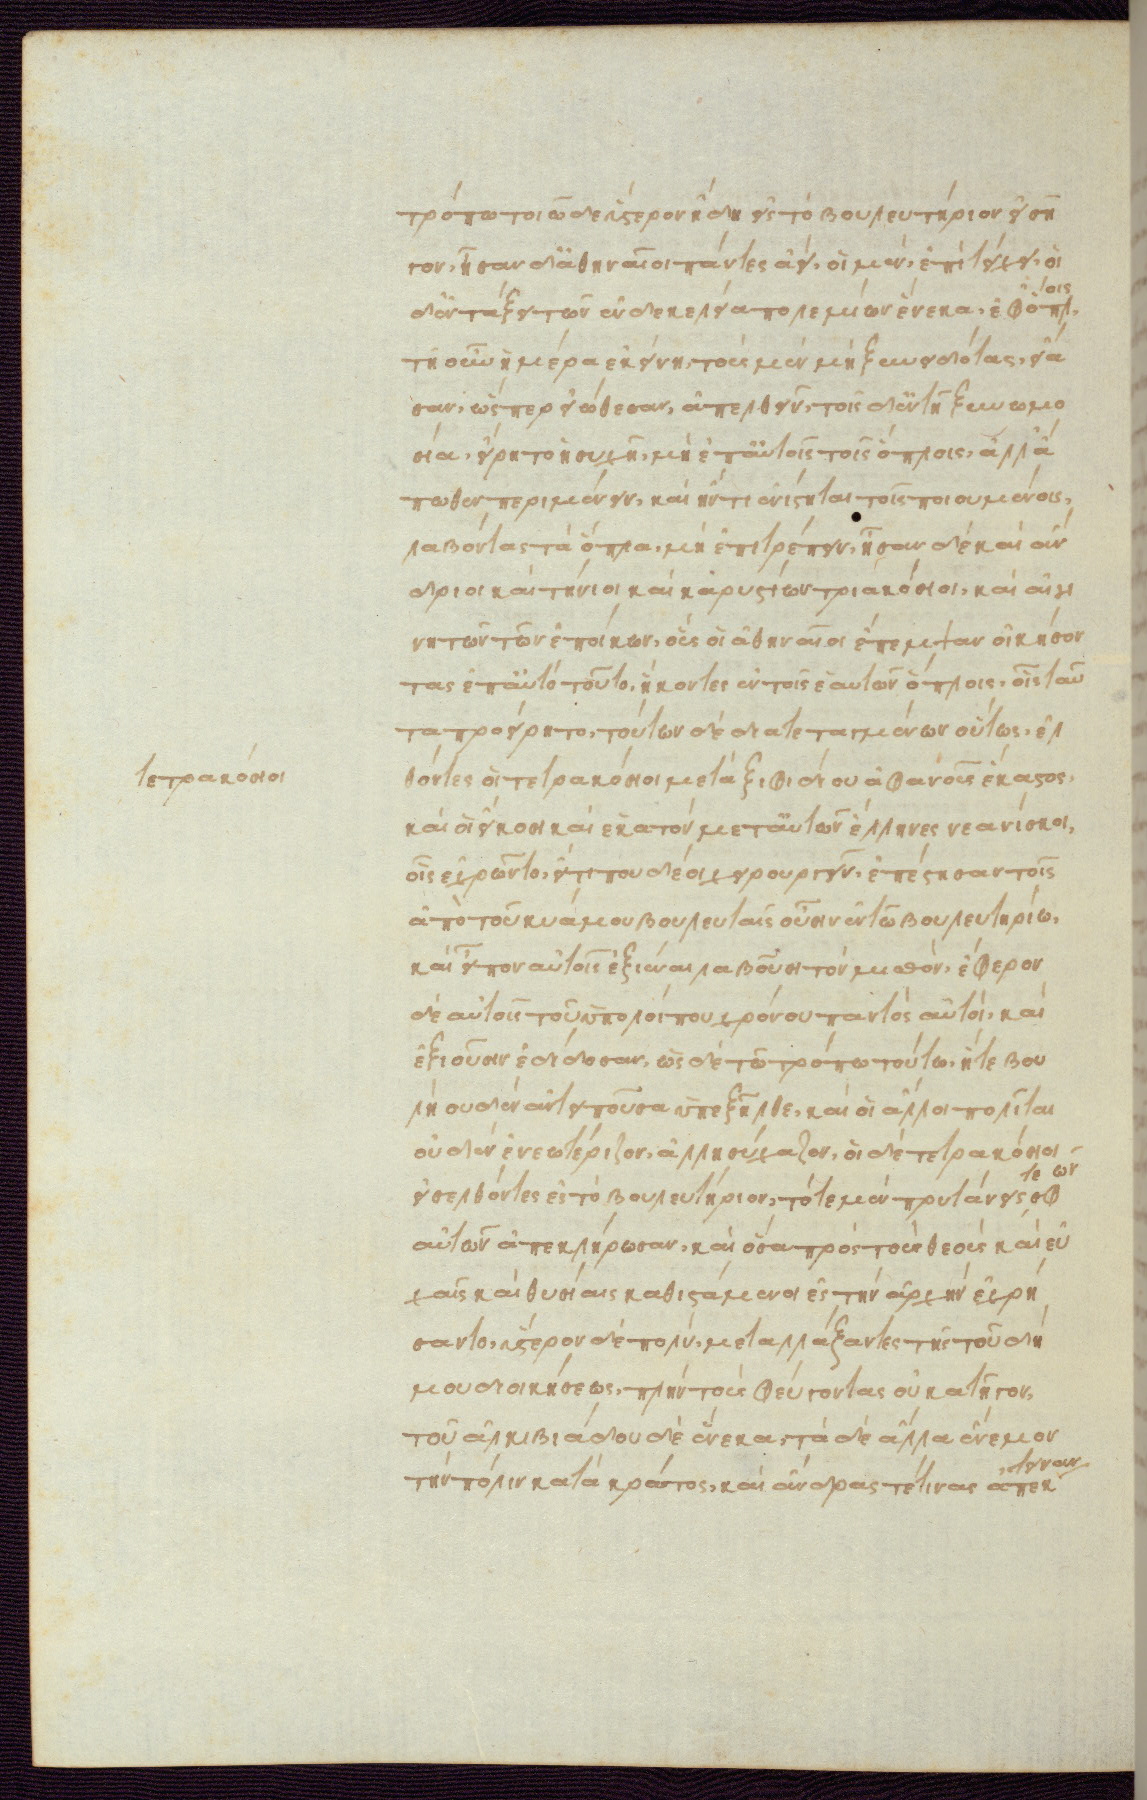 τρόπω τοιῶδε ὕστερον ἤδη εἰς τὸ βουλευτήριον εἰσῆ
γον, ἦσαν δ' ἀθηναῖοι πάντες ἀεὶ, οἱ μὲν, ἐπὶ τείχει, οἱ
δ' ἐν τάξει τῶν ἐν δεκελεία πολεμίων ἕνεκα, ἐφ' ὅπλοις,
τῆ οὖν ἡμέρα ἐκείνη, τοὺς μὲν μὴ ξυνειδότας, εἴα
σαν, ὥσπερ εἰώθεσαν, ἀπελθεῖν, τοῖς δ' ἐν τῆ ξυνωμο
σία, εἴρητο ἡσυχῆ, μὴ ἐπ' αὐτοῖς τοῖς ὅπλοις, ἀλλ' ἄ
πωθεν περιμένειν, καὶ ἤν τι ἐνίστηται τοῖς ποιουμένοις,
λαβόντας τὰ ὅπλα, μὴ ἐπιτρέπειν, ἦσαν δὲ καὶ ἄν
δριοι καὶ τήνιοι καὶ καρυστίων τριακόσιοι, καὶ αἰγι
νητῶν τῶν ἐποίκων, οὓς οἱ ἀθηναῖοι ἔπεμψαν οἰκήσον
τας ἐπ' αὐτὸ τοῦτο, ἥκοντες ἐν τοῖς ἑαυτῶν ὅπλοις, οἷς ταῦ
τα προείρητο, τούτων δὲ διατεταγμένων οὕτως, ἐλ
τετρακόσιοι
θόντες οἱ τετρακόσιοι μετὰ ξιφιδίου ἀφανοῦς ἕκαστος,
καὶ οἱ εἴκοσι καὶ ἑκατὸν μετ' αὐτῶν ἕλληνες νεανίσκοι,
οἷς ἐχρῶντο, εἴ τι που δέοι χειρουργεῖν, ἐπέστησαν τοῖς
ἀπὸ τοῦ κυάμου βουλευταῖς οὖσιν ἐν τῶ βουλευτηρίω,
καὶ εἶπον αὐτοῖς ἐξιέναι λαβοῦσι τὸν μισθόν, ἔφερον
δὲ αὐτοῖς τοῦ ὑπολοίπου χρόνου παντὸς αὐτοί, καὶ
ἐξιοῦσιν ἐδίδοσαν, ὡς δὲ τῶ τρόπω τούτω, ἥτε βου
λὴ οὐδὲν ἀντειποῦσα ὑπεξῆλθε, καὶ οἱ ἄλλοι πολῖται
οὐδὲν ἐνεωτέριζον, ἀλλ' ἡσύχαζον, οἱ δὲ τετρακόσιοι
εἰσελθόντες ἐς τὸ βουλευτήριον, τότε μὲν πρυτάνεις τε σφῶν
αὐτῶν ἀπεκλήρωσαν, καὶ ὅσα πρὸς τοὺς θεοὺς καὶ εὐ
χαῖς καὶ θυσίαις καθιστάμενοι ἐς τὴν ἀρχὴν ἐχρή
σαντο, ὕστερον δὲ πολὺ, μεταλλάξαντες τῆς τοῦ δή
μου διοικήσεως, πλὴν τοὺς φεύγοντας οὐ κατῆγον,
τοῦ ἀλκιβιάδου δὲ ἕνεκα, τὰ δὲ ἄλλα ἔνεμον
τὴν πόλιν κατὰ κράτος, καὶ ἄνδρας τέ τινας ἀπέκτειναν